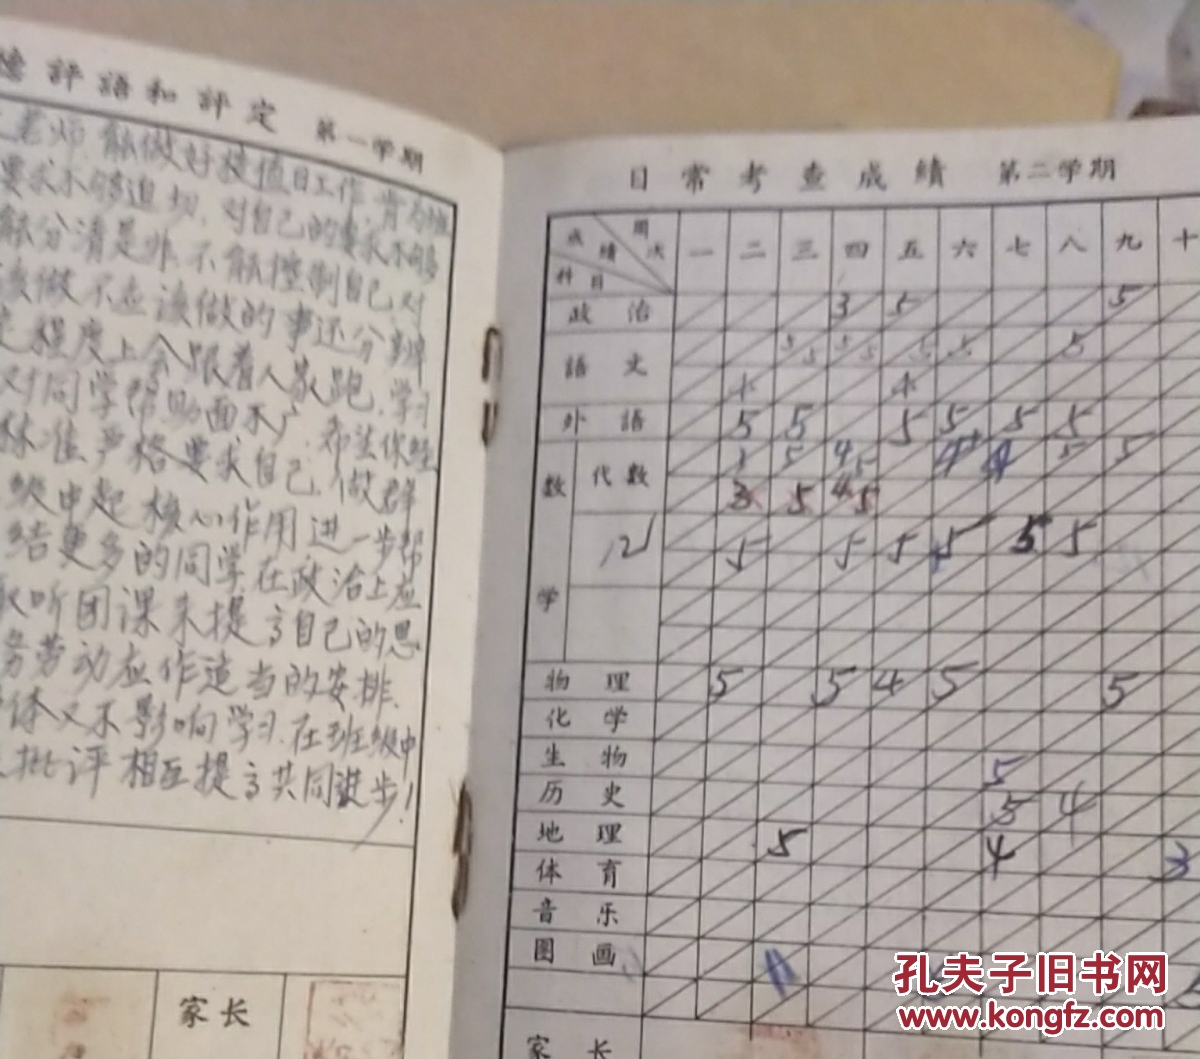 評語和評定 第一学期
老师.能做好按值日工作 肯为
要求不够迫切.对自己的要求不够
能分清是非.不能控制自己对
该做不应该做的事还分辨
程度上会跟着人家跑.学习
对同学帮助面不广.希望你能
标准严格要求自己.做群
级中起核心作用进一步帮
结更多的同学在政治上应
听团课来提高自己的思
务劳动应作适当的安排.
体又不影响学习.在班级中
批评相互提高共同进步!
家长
日常考查成績 第二学期
成績 周次 科目 一 二 三 四 五 六 七 八 九 十
政治 3 5 5
語文 5 5 5 5 5 5 5
4 4
外語 5 5 5 5 5 5
数学
代数 5 4 5 4 4 5 5
3 5 4 5
5 5 5 5 5 5
物理 5 5 4 5 5
化学
生物 5
历史 5 4
地理 5 4 3
体育
音乐
图画
家长
孔夫子旧书网
www.kongfz.com